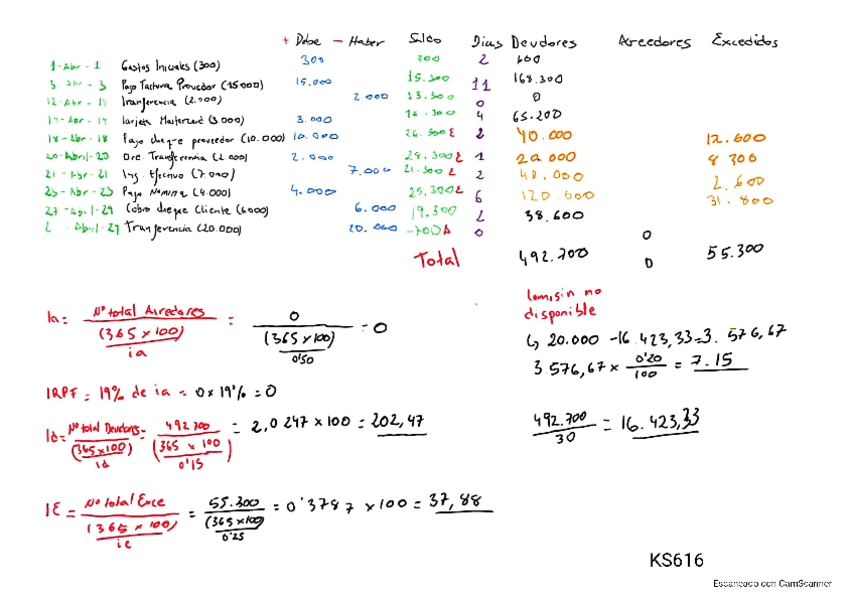 + Debe - Haber Saldo Dias Deudores Acreedores Excedidos
1-Abr-1 Gastos Iniciales (300) 300 300 2 600
3-Abr-3 Pago Factura Proveedor (15000) 15.000 15.300 11 168.300
12-Abr-14 Tranferencia (2.000) 2 000 13.300 0 0
14-Abr-14 Tarjeta Mastercard (3.000) 3.000 16.300 4 65.200
18-Abr-18 Pago cheque proveedor (10.000) 10.000 26.300 E 2 40.000 12.600
20-Abril-20 Orc. Transferencia (2.000) 2.000 28.300 E 1 20 000 8 300
21-Abr-21 Ing. Efectivo (7.000) 7.000 21.300 E 2 40.000 2.600
23-Abr-23 Pago Nomina (4.000) 4.000 25.300 E 6 120.000 31.800
27-Abril-29 Cobro cheque Cliente (6000) 6.000 19.300 2 38.600
2 -Abril-29 Tranferencia (20.000) 20.000 -700 A 0 0
Total 492.700 0 55.300
Ia = Nº total Acredores / (365 x 100) / ia = 0 / (365 x 100) / 0'50 = 0
IRPF = 19% de ia = 0 x 19% = 0
Id = Nº total Deudores / (365 x 100) / id = 492 700 / (365 x 100) / 0'15 = 2,0247 x 100 = 202,47
IE = Nº total Exce / (365 x 100) / ie = 55.300 / (365 x 100) / 0'25 = 0'3787 x 100 = 37,88
Comisin no
disponible
↳ 20.000 - 16.423,33 = 3.576,67
3.576,67 x 0'20 / 100 = 7.15
492.700 / 30 = 16.423,33
KS616
Escaneado con CamScanner